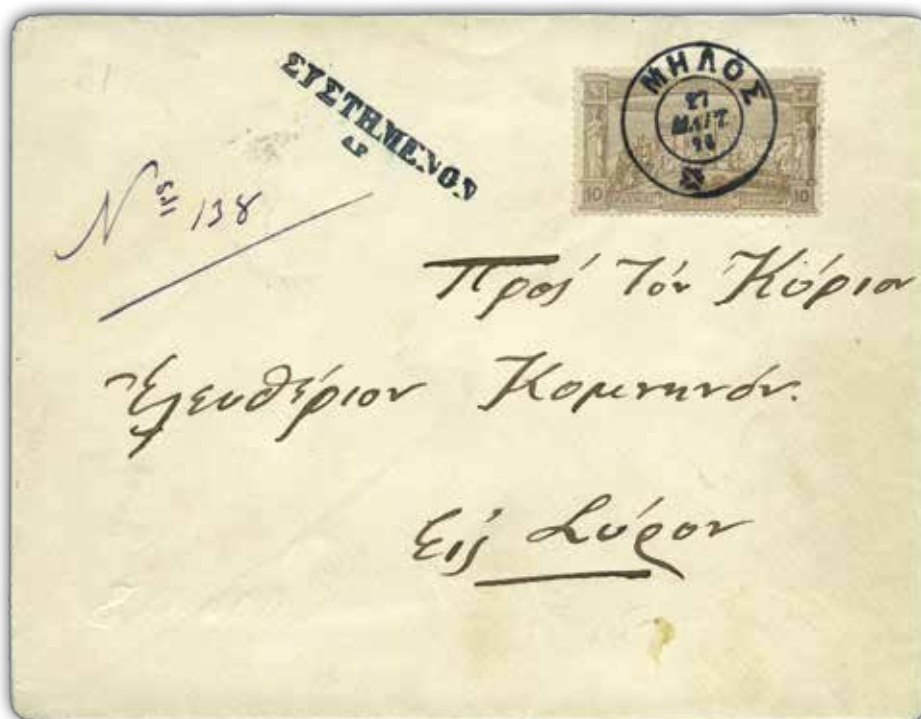 ΣΥΣΤΗΜΕΝΟΝ
ΜΗΛΟΣ
27
ΜΑΡΤ
96
10 10
Νο 138
Πρός Τόν Κύριον
Ἐλευθέριον Κομνηνόν.
Εἰς Σύρον